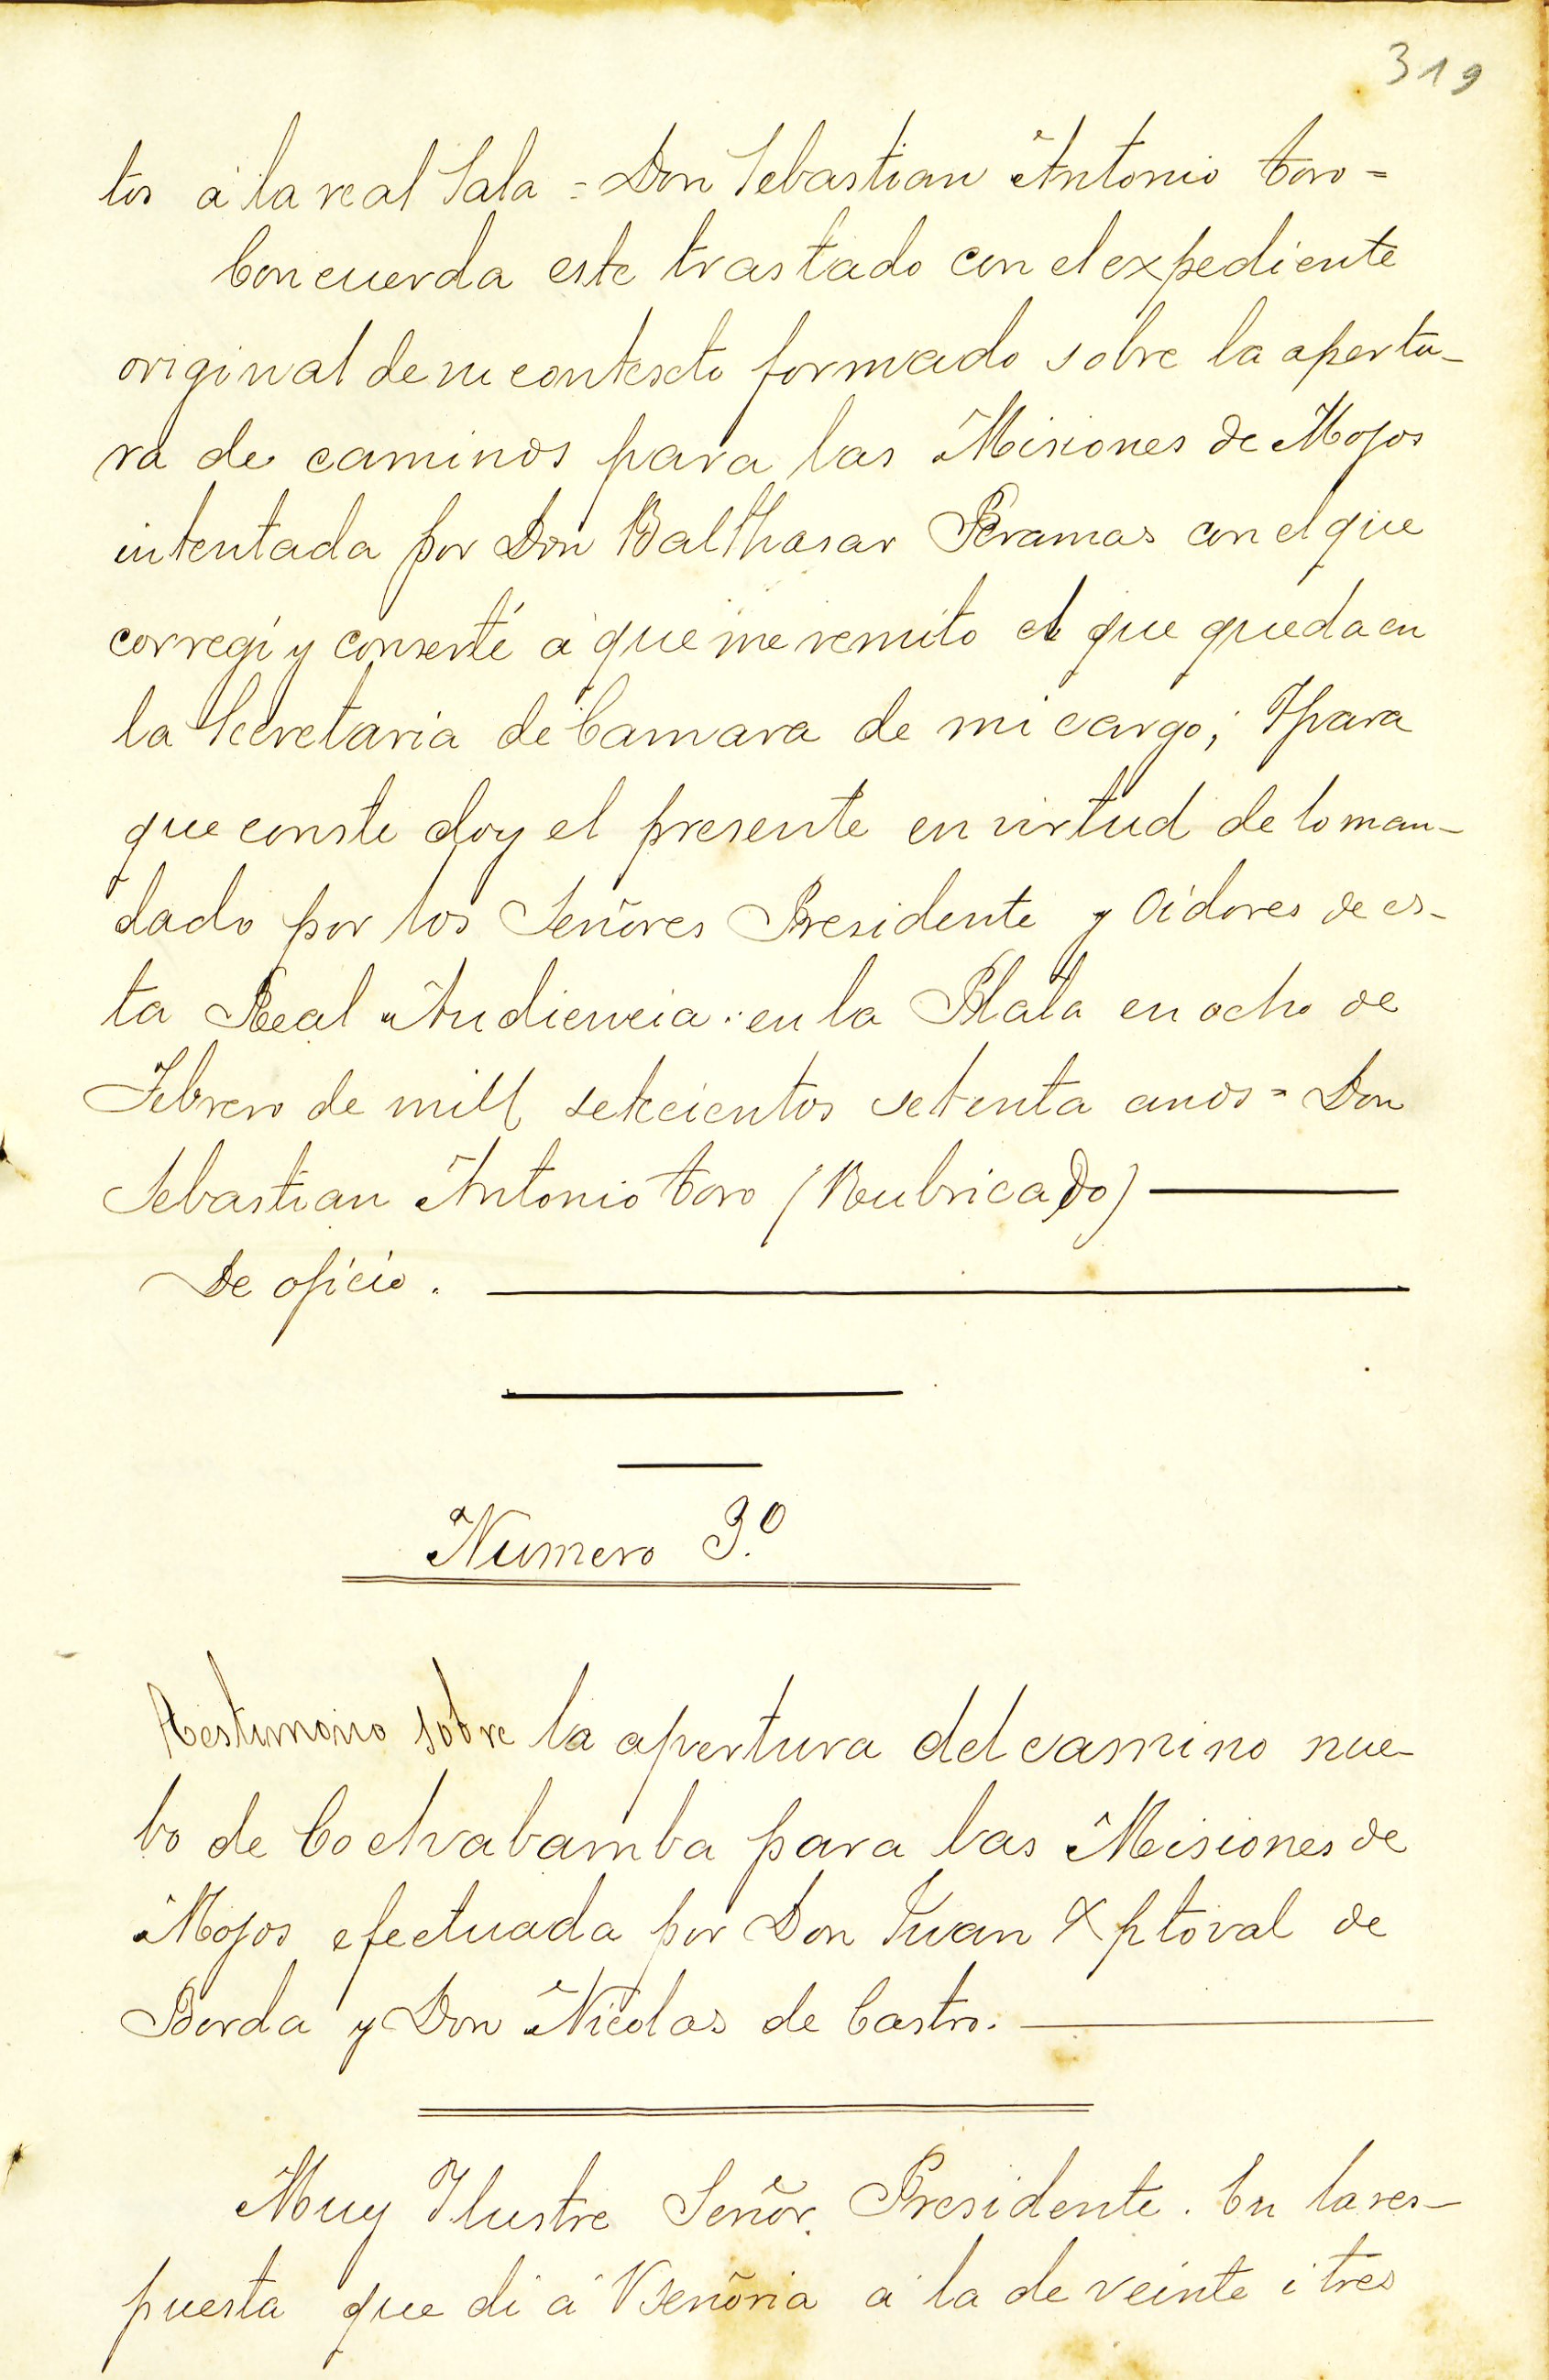 319
tos á la real Sala = Don Sebastian Antonio toro =
Concuerda este trastado con el expediente
original de su contescto formado sobre la apertu-
ra de caminos para las Misiones de Mojos
intentada por Don Balthasar Peramas con el que
corregi y conserté á que me remito el que queda en
la Secretaria de Camara de mi cargo; Y para
que conste doy el presente en virtud de lo man-
dado por los Señores Presidente y Oidores de es-
ta Real Audiencia: en la Plata en ocho de
Febrero de mill setecientos setenta anos = Don
Sebastian Antonio toro (Rubricado)
De oficio.
Numero 3.º
Testimonio sobre la apertura del camino nue-
bo de Cochabamba para las Misiones de
Mojos efectuada por Don Juan Xptoval de
Borda y Don Nicolas de Castro.
Muy Ilustre Señor Presidente. En la res-
puesta que di á Vseñoria a la de veinte i tres